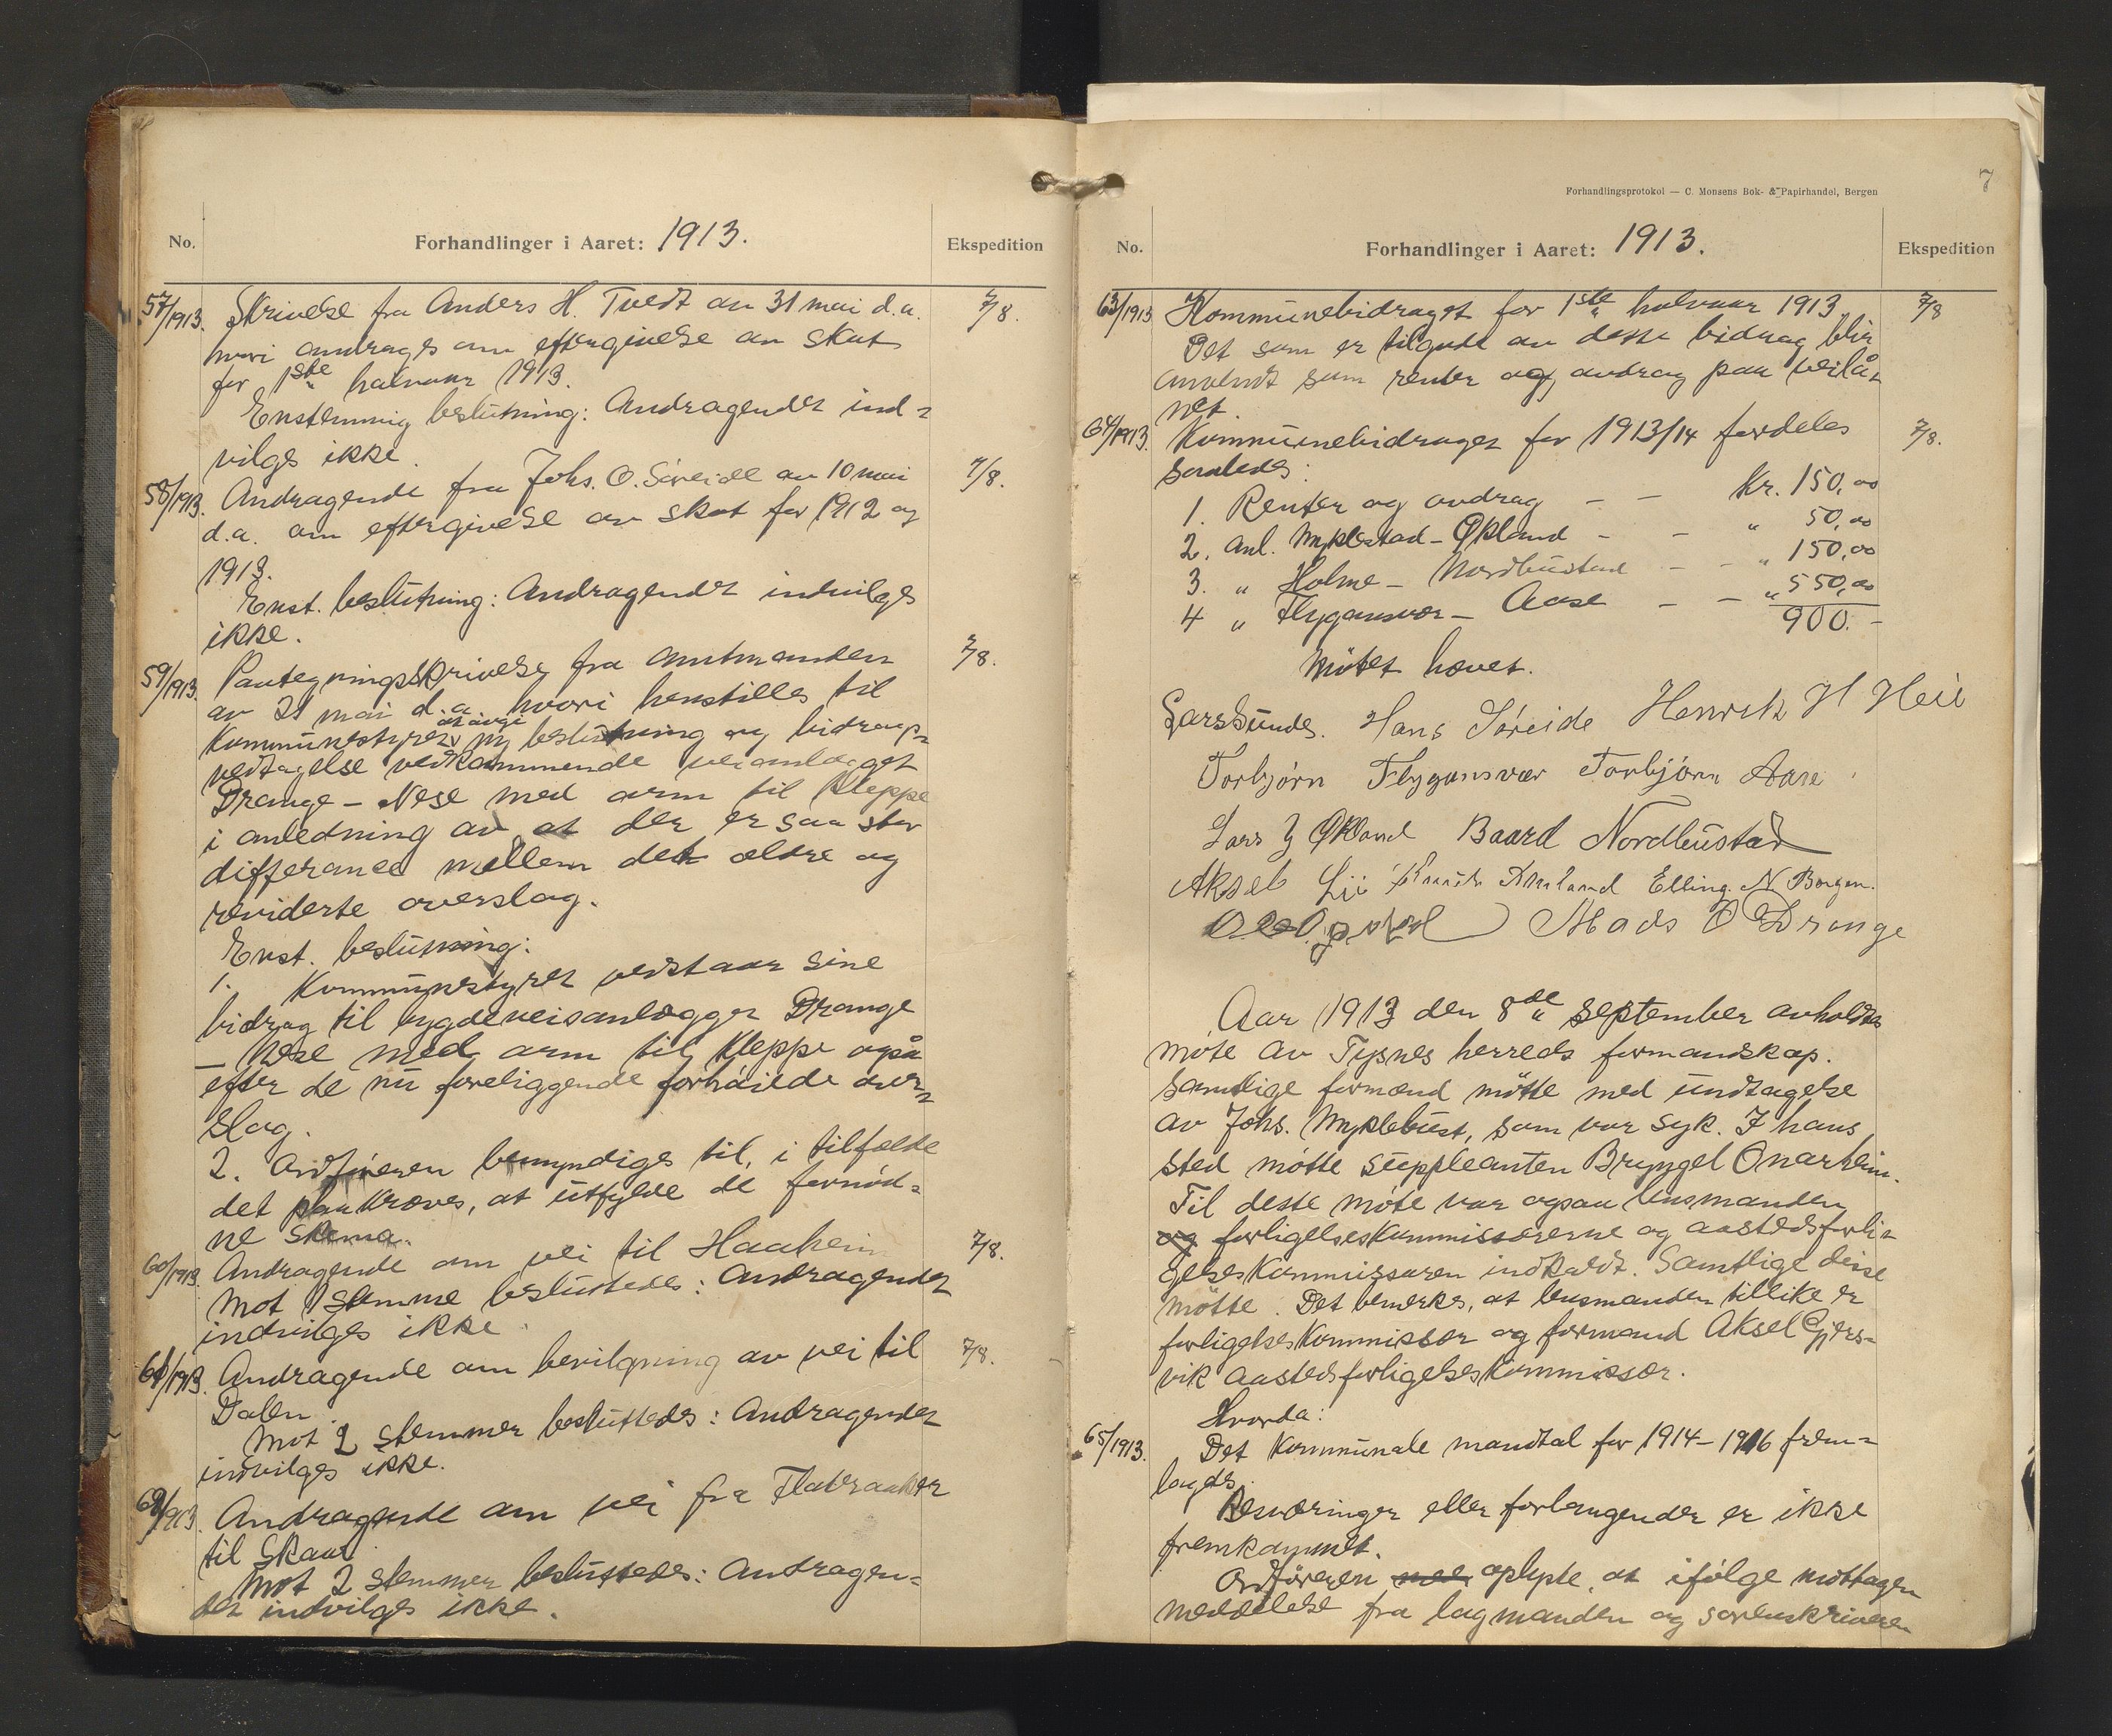 No.
Forhandlinger i Aaret: 1913.
Ekspedition
57/1913. Skrivelse fra Anders H. Tvedt av 31 mai d.a. 7/8.
hvori andrages om eftergivelse av skat
for 1ste halvaar 1913.
Enstemmig beslutning: Andragendet ind-
vilges ikke.
58/1913. Andragende fra Johs. O. Söreide av 10 mai 7/8.
d.a. om eftergivelse av skat for 1912 og
1913.
Enst. beslutning: Andragendet indvilges
ikke.
59/1913. Paategningsskrivelse fra amtmanden 7/8.
av 21 mai d.a. hvori henstilles til
Kommunestyret at avgi ny beslutning og bidrags-
vedtagelse vedkommende veianlægget
Drange - Nese med arm til Kleppe
i anledning av at der er saa stor
differance mellem det ældre og
reviderte overslag.
Enst. beslutning:
1. Kommunestyret vedstaar sine
bidrag til bygdeveisanlægget Drange
- Nese med arm til Kleppe også
efter de nu foreliggende forhöiede over-
slag.
2. Ordföreren bemyndiges til, i tilfælde
det kræves, at utfylde de fornöd-
ne skema.
60/1913. Andragende om vei til Haaheim 7/8.
Mot 1 stemme besluttedes: Andragendet
indvilges ikke.
61/1913. Andragende om bevilgning av vei til 7/8.
Dalen.
Mot 2 stemmer besluttedes: Andragendet
indvilges ikke.
62/1913. Andragende om vei fra Flatraaker
til Skaar.
Mot 2 stemmer besluttedes: Andragen-
det indvilges ikke.
7
Forhandlingsprotokol — C. Monsens Bok- & Papirhandel, Bergen
No.
Forhandlinger i Aaret: 1913.
Ekspedition
63/1913 Kommunebidraget for 1ste halvaar 1913. 7/8
Det som er tilgode av dette bidrag blir
anvendt som renter og avdrag paa veilå-
net.
64/1913. Kommunebidraget for 1913/14 fordeles 7/8.
saaledes:
1. Renter og avdrag - - Kr. 150,00
2. Anl. Myklestad - Økland - - " 50,00
3. " Holme - Nordbustad - - " 150,00
4 " Flygansvær - Aase - - " 550,00
900.-
Mötet hævet.
Lars Sunde. Hans Söreide Henrik H Heie
Torbjörn Flygansvær Torbjörn Aase
Lars J Økland Baard Nordbustad
Aksel Lie Amland Elling N. Borgen.
Mads O Drange
Aar 1913 den 8de september avholdtes
möte av Tysnes herreds formandskap.
Samtlige formænd mötte med undtagelse
av Johs. Myklebust, som var syk. I hans
sted mötte suppleanten Bryngel Onarheim.
Til dette möte var ogsaa lensmanden
og forligelseskommissærerne og aastedsforli-
gelseskommissæren indkaldt. Samtlige disse
mötte. Det bemerkes, at lensmanden tillike er
forligelseskommissær og formand Aksel Gjers-
vik aastedsforligelseskommissær.
Hvorda:
65/1913. Det kommunale mandtal for 1914-1916 frem-
lagdes.
Besværinger eller forlangender er ikke
fremkommet.
Ordföreren oplyste, at ifölge mottagen
meddelelse fra lagmanden og sorenskriveren